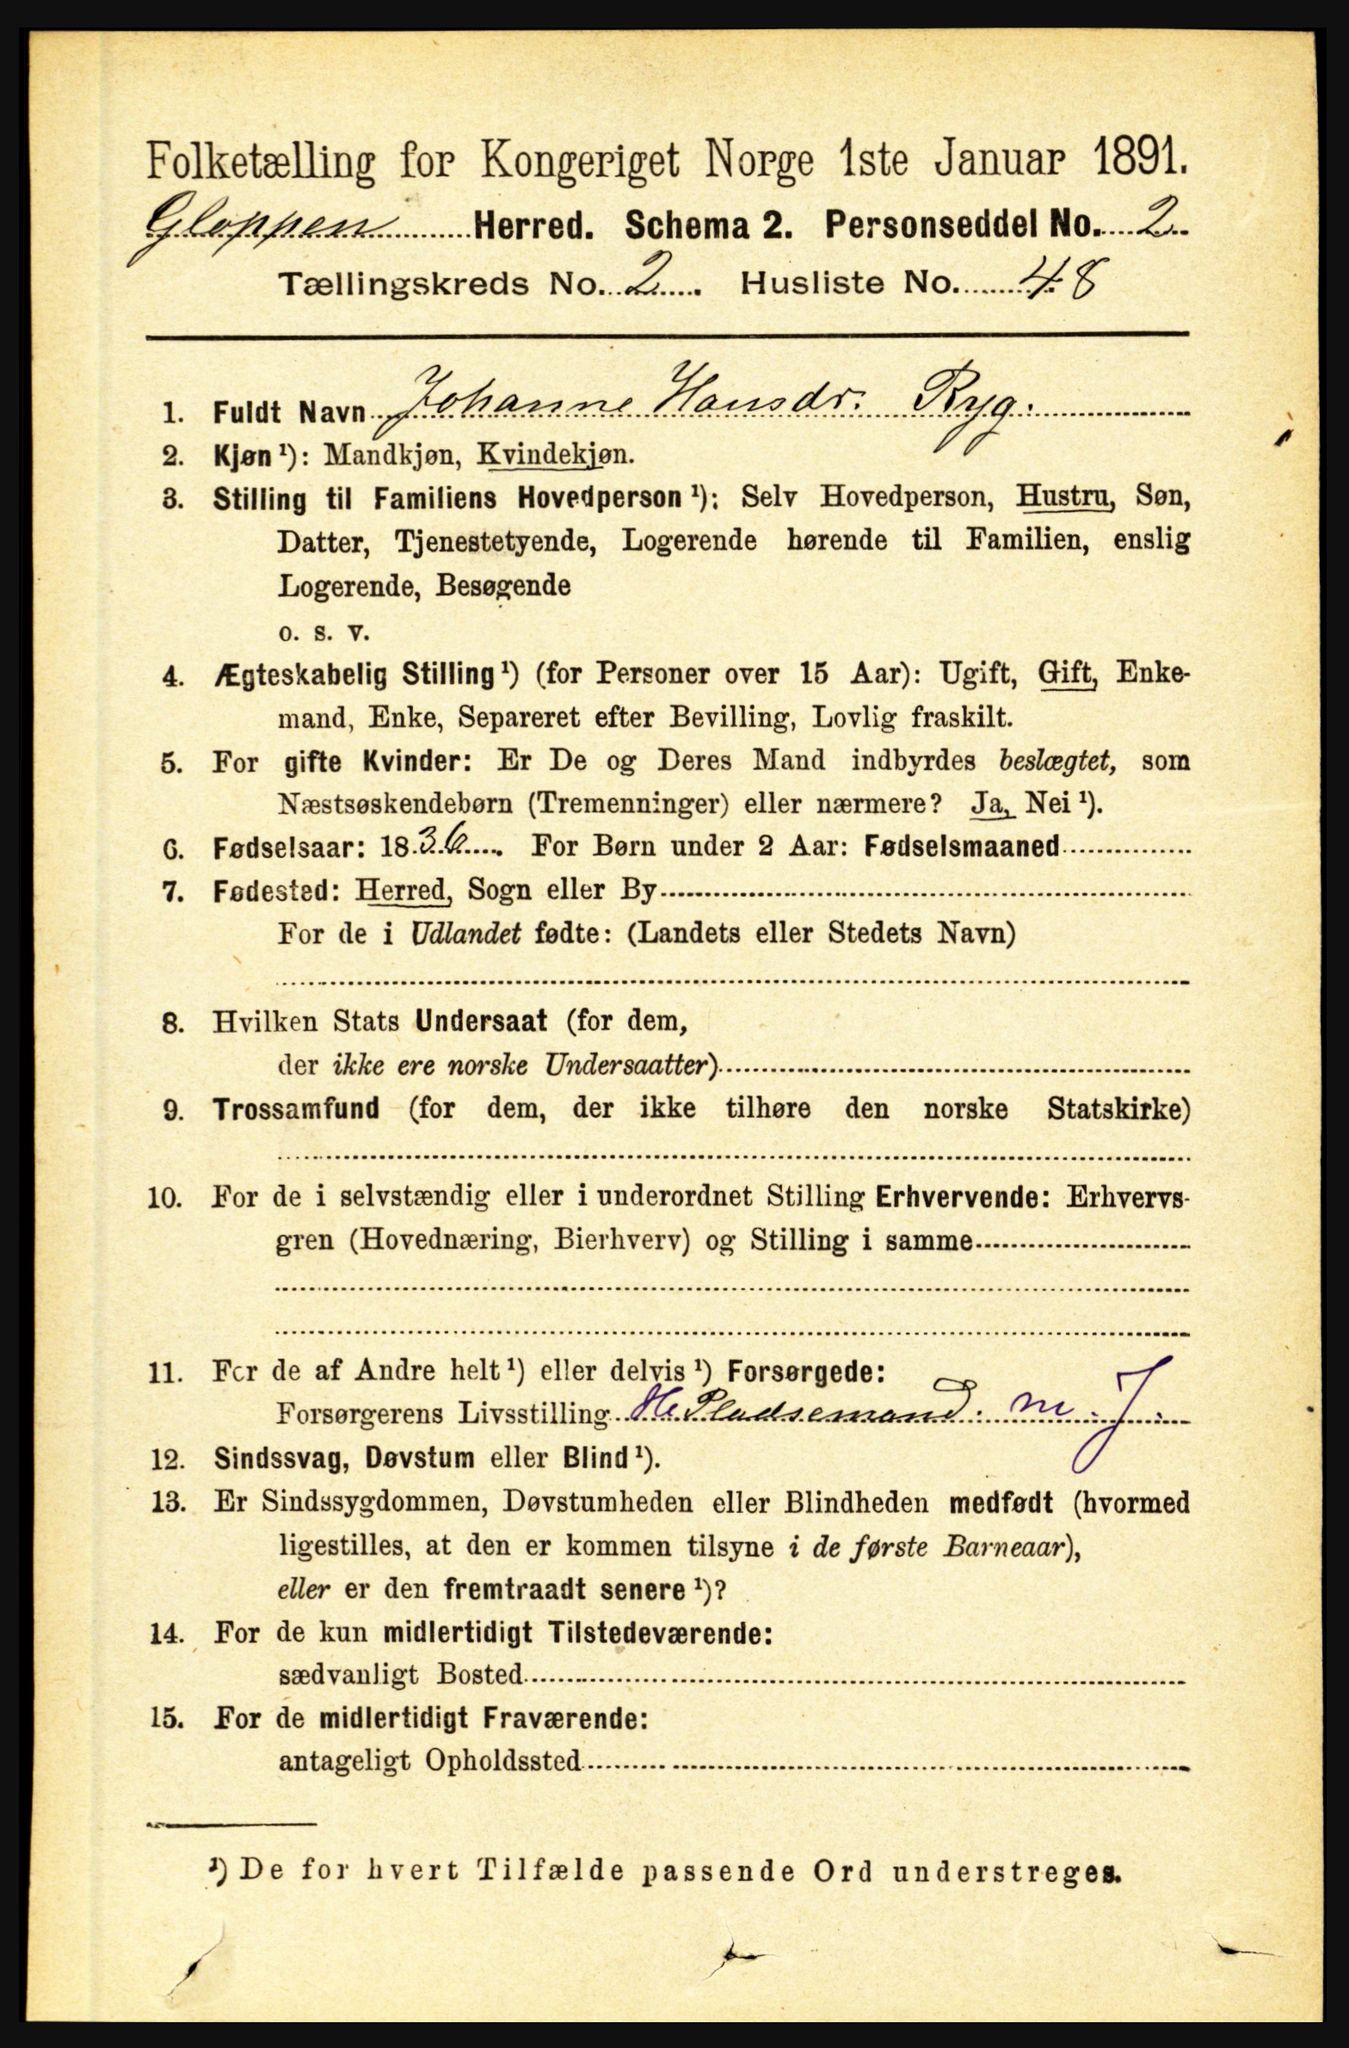 Folketælling for Kongeriget Norge 1ste Januar 1891.
Gloppen Herred. Schema 2. Personseddel No. 2
Tællingskreds No. 2. Husliste No. 48
1. Fuldt Navn Johanne Hansdr. Ryg.
2. Kjøn ¹): Mandkjøn, Kvindekjøn.
3. Stilling til Familiens Hovedperson ¹): Selv Hovedperson, Hustru, Søn,
Datter, Tjenestetyende, Logerende hørende til Familien, enslig
Logerende, Besøgende
o. s. v.
4. Ægteskabelig Stilling ¹) (for Personer over 15 Aar): Ugift, Gift, Enke-
mand, Enke, Separeret efter Bevilling, Lovlig fraskilt.
5. For gifte Kvinder: Er De og Deres Mand indbyrdes beslægtet, som
Næstsøskendebørn (Tremenninger) eller nærmere? Ja, Nei ¹).
6. Fødselsaar: 1836. For Børn under 2 Aar: Fødselsmaaned
7. Fødested: Herred, Sogn eller By
For de i Udlandet fødte: (Landets eller Stedets Navn)
8. Hvilken Stats Undersaat (for dem,
der ikke ere norske Undersaatter)
9. Trossamfund (for dem, der ikke tilhøre den norske Statskirke)
10. For de i selvstændig eller i underordnet Stilling Erhvervende: Erhvervs-
gren (Hovednæring, Bierhverv) og Stilling i samme
11. For de af Andre helt ¹) eller delvis ¹) Forsørgede:
Forsørgerens Livsstilling He Pladsemand. m. J.
12. Sindssvag, Døvstum eller Blind ¹).
13. Er Sindssygdommen, Døvstumheden eller Blindheden medfødt (hvormed
ligestilles, at den er kommen tilsyne i de første Barneaar),
eller er den fremtraadt senere ¹)?
14. For de kun midlertidigt Tilstedeværende:
sædvanligt Bosted
15. For de midlertidigt Fraværende:
antageligt Opholdssted
¹) De for hvert Tilfælde passende Ord understreges.